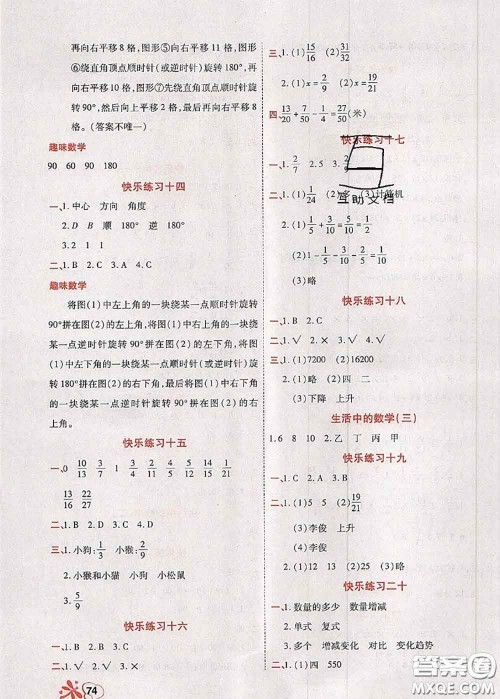 再向右平移 8 格,图形⑤向右平移 11 格,图形
⑥绕直角顶点顺时针(或逆时针)旋转 180°,再
向右平移 10 格,图形⑦先绕直角顶点顺时针旋
转 90°,然后向上平移 2 格,最后再向右平移 8
格。(答案不唯一)
趣味数学
90 60 90 180
快乐练习十四
一、1. 中心 方向 角度
2. D B 顺 180° 逆 180°
3. 2 1 1
二、1. B 2. A 3. C
趣味数学
将图(1)中左上角的一块绕某一点顺时针旋转
90°拼在图(2)的左上角,将图(1)中右上角的一块绕
某一点逆时针旋转 90°拼在图(2)的左下角,将图
(1)中左下角的一块绕某一点顺时针(或逆时针)旋
转 180°拼在图(2)的右下角,最后将图(1)中右下角
的一块绕某一点逆时针旋转 90°拼在图(2)的右
上角。
快乐练习十五
一、0 10/13 3/7 1 1/2 3/5 19/21 7/15 8/21
13/16 22/27
二、1. B 2. D 3. C 4. A
三、1. 小狗:1/3 小猴:2/9
2. 小猴和小猫 小狗 小松鼠
3. 5/9
快乐练习十六
一、1. C 2. A 3. B
74
三、1. (1)15/16 (2)31/32
2. (1)x=2/9 (2)x=19/21
四、13/20+7/50-1/4=27/50(米)
快乐练习十七
一、1. 2/7 2. 1/2 3. 2/9
二、1. (1)1/24 (2)多 (3)计算机
互助文档
2. (1)1/5=1/5 (2)9/35=9/35
(3)略
快乐练习十八
一、1. B 2. A
二、1. √ 2. × 3. √ 4. √
三、1. (1)7200 (2)16200
2. (1)略 (2)四 二
(3)下降 上升
生活中的数学(三)
1. 6 8 10 2. 乙 丁 丙 甲
快乐练习十九
一、1. C 2. B
二、1. (1)5 5 (2)19/21
(3)李俊 上升
2. (1)略 (2)略
(3)李俊
快乐练习二十
一、1. 数量的多少 数量增减
2. 单式 复式
3. 多个 增减变化 对比 变化趋势
二、1. (1)四 550
答案圈
MXQE.COM